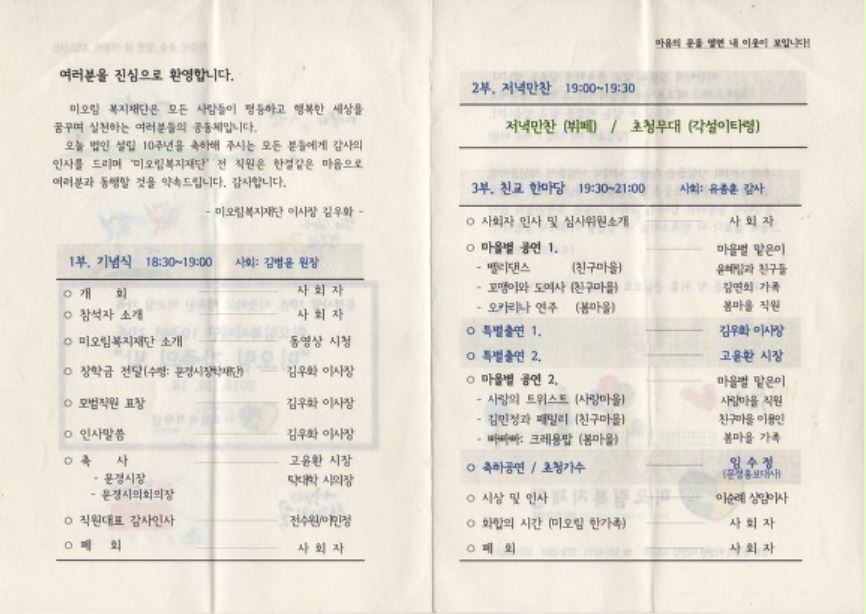 여러분을 진심으로 환영합니다.
미오림 복지재단은 모든 사람들이 평등하고 행복한 세상을
꿈꾸며 실천하는 여러분들의 공동체입니다.
오늘 법인 설립 10주년을 축하해 주시는 모든 분들에게 감사의
인사를 드리며 '미오림복지재단' 전 직원은 한결같은 마음으로
여러분과 동행할 것을 약속드립니다. 감사합니다.
- 미오림복지재단 이사장 김우화 -
1부. 기념식 18:30~19:00 사회: 김범윤 원장
○ 개 회 사 회 자
○ 참석자 소개 사 회 자
○ 미오림복지재단 소개 동영상 시청
○ 장학금 전달(수령: 문경시장학재단) 김우화 이사장
○ 모범직원 표창 김우화 이사장
○ 인사말씀 김우화 이사장
○ 축 사 고윤환 시장
- 문경시장 탁대학 시의장
- 문경시의회의장
○ 직원대표 감사인사 전수원/이민정
○ 폐 회 사 회 자
마음의 문을 열면 내 이웃이 보입니다!
2부. 저녁만찬 19:00~19:30
저녁만찬 (뷔페) / 초청무대 (각설이타령)
3부. 친교 한마당 19:30~21:00 사회: 유종훈 감사
○ 사회자 인사 및 심사위원소개 사 회 자
○ 마을별 공연 1. 마을별 맡은이
- 벨리댄스 (친구마을) 윤혜림과 친구들
- 꼬맹이와 도여사 (친구마을) 김연희 가족
- 오카리나 연주 (봄마을) 봄마을 직원
○ 특별출연 1. 김우화 이사장
○ 특별출연 2. 고윤환 시장
○ 마을별 공연 2. 마을별 맡은이
- 사랑의 트위스트 (사랑마을) 사랑마을 직원
- 김민정과 패밀리 (친구마을) 친구마을 이용인
- 빠빠빠: 크레용팝 (봄마을) 봄마을 가족
○ 축하공연 / 초청가수 임 수 정
(문경홍보대사)
○ 시상 및 인사 이순례 상임이사
○ 화합의 시간 (미오림 한가족) 사 회 자
○ 폐 회 사 회 자